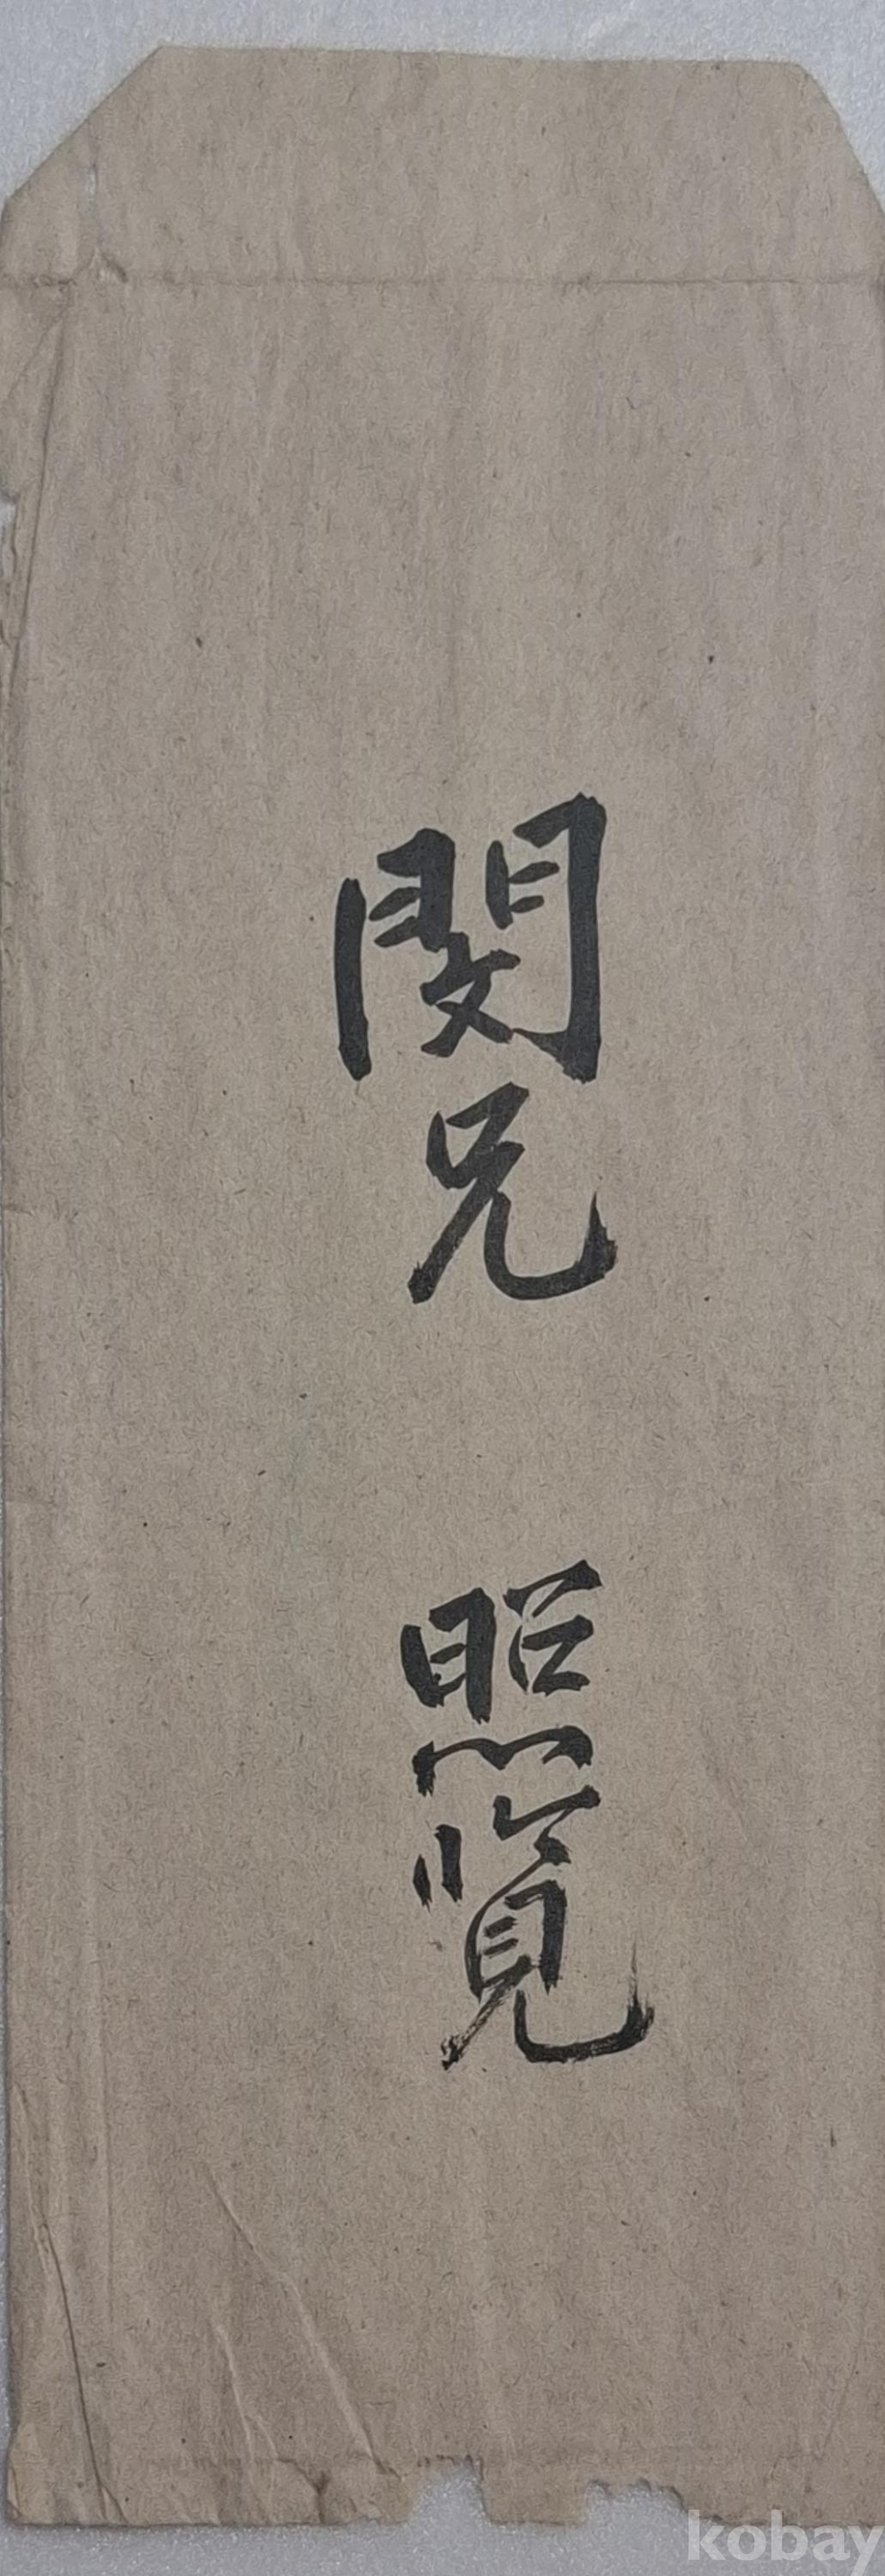 閔兄
照覧
kobay